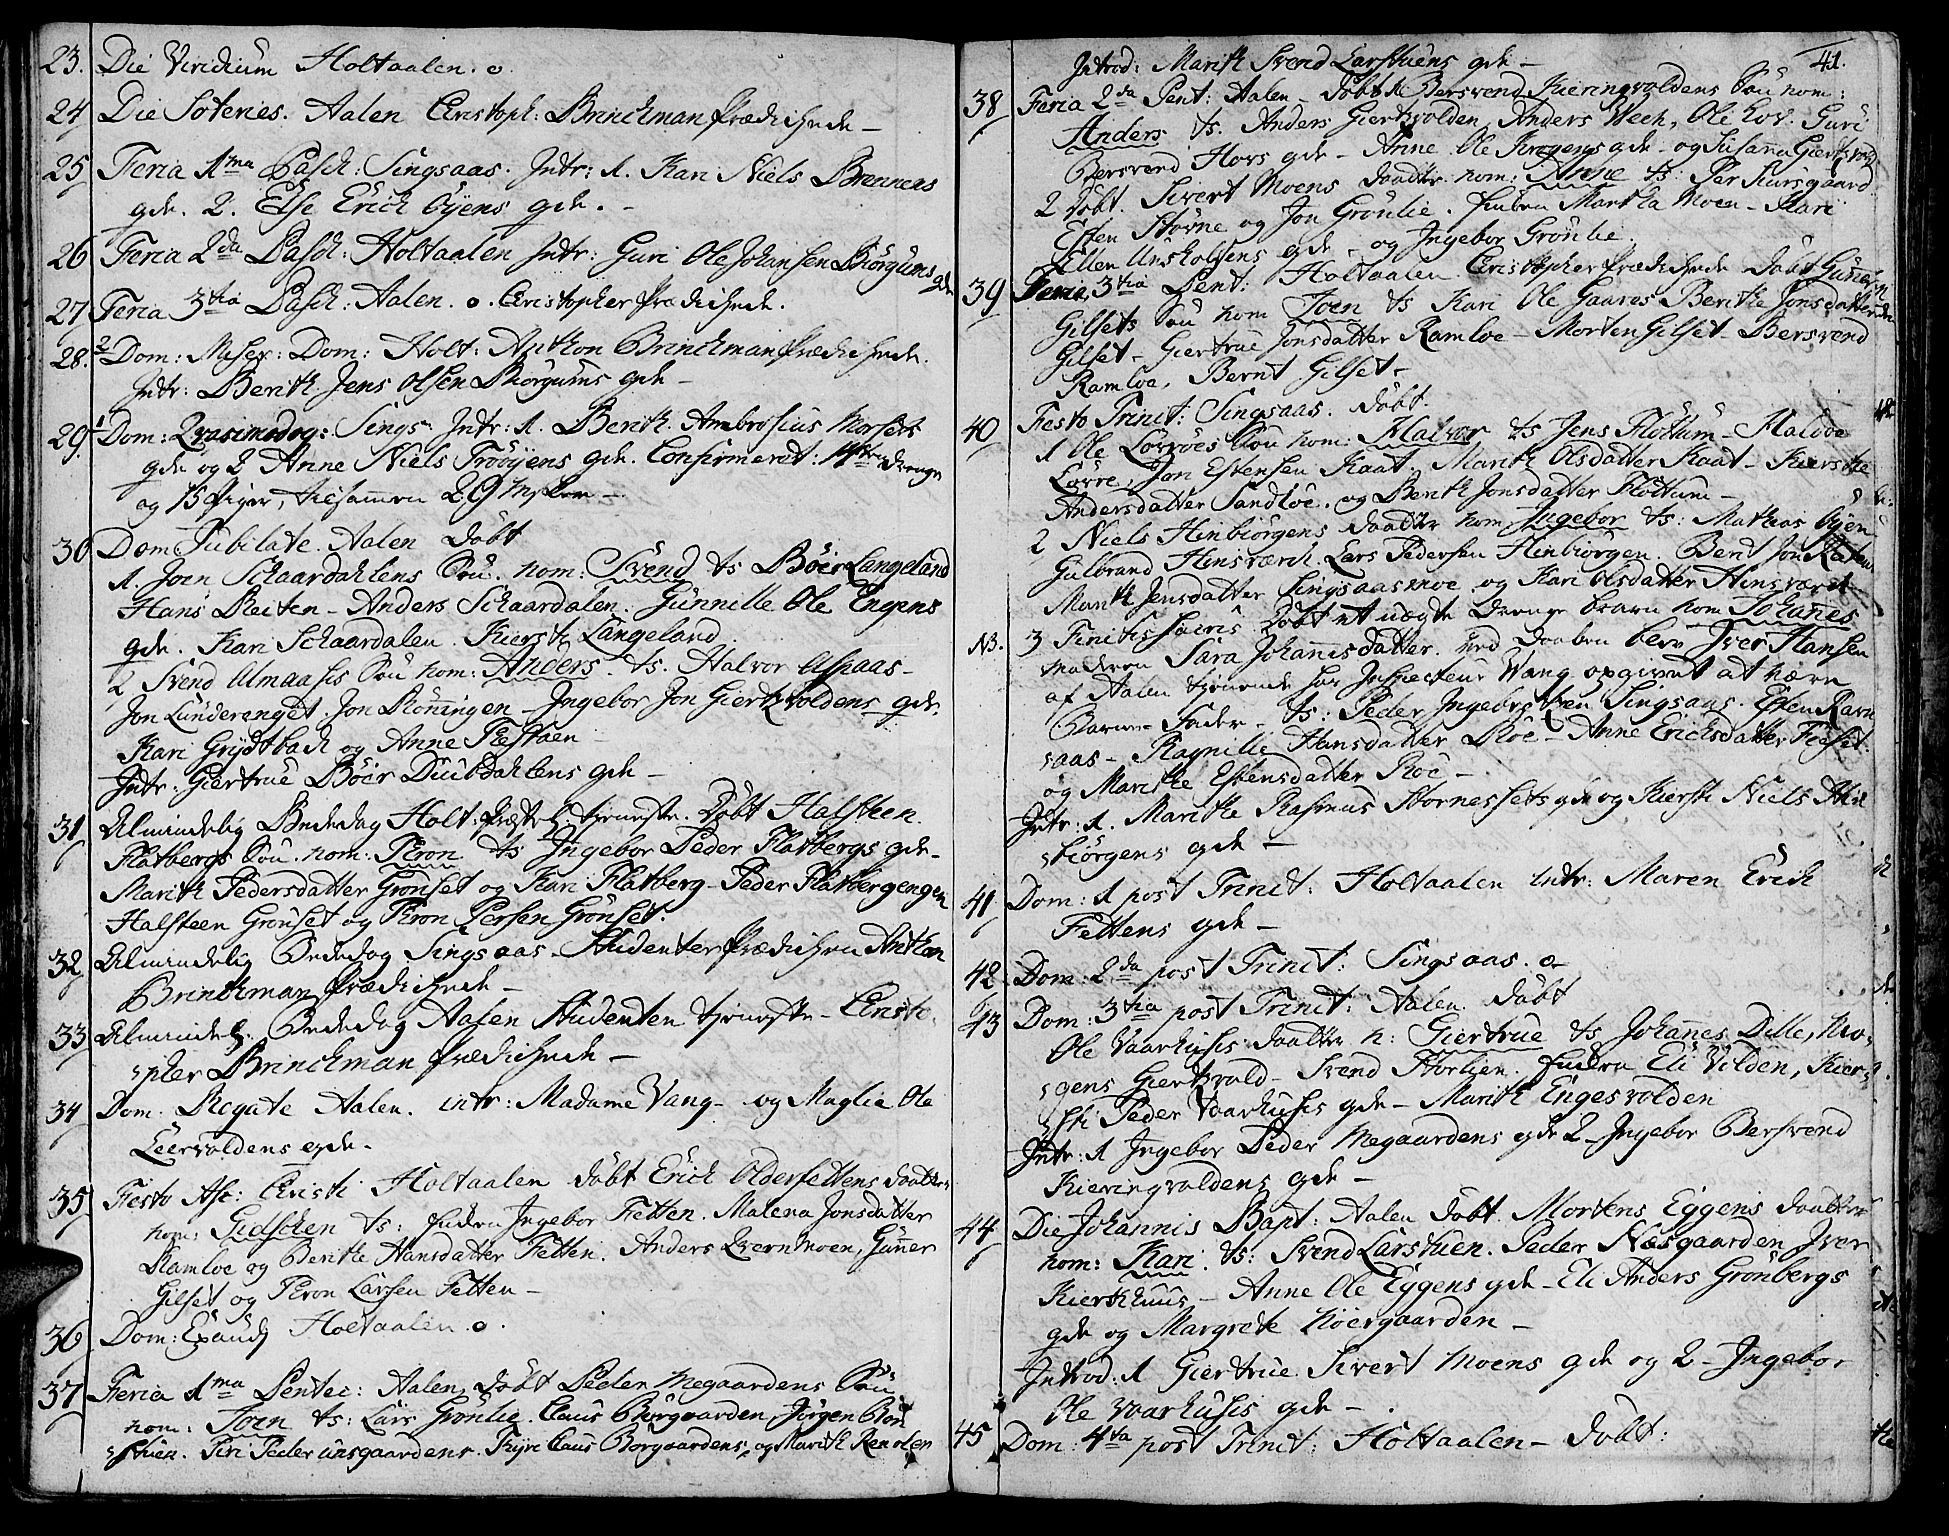 23. Die Viridium Holtaalen. o.
24 Die Soteries. Aalen Christoph: Brinckman prædichede –
25 Feria 1ma Pasch: Singsaas. Intr: 1. Kari Niels Brennens
gde. 2. Else Erich Öyens gde. –
26 Feria 2da Pasch: Holtaalen Intr: Guri Ole Johansen Börgums gde
27 Feria 3tia Pasch: Aalen. o. Christopher prædichede.
28. 2 Dom: Miser: Dom: Holt: Anthon Brinckman prædichede.
Intr: Berith Jens Olsen Börgums gde –
29. 1 Dom: Qvasimodog: Sings. Intr: 1. Berith Ambrosius Morsets
gde og 2 Anne Niels Trööyens gde. Confirmeret: 14ten drenge
og 15 Piger, tilsamen 29 –
30 Dom Jubilate. Aalen döbt
1. Joen Schaardahlens Sön. nom: Svend ts Böer Langeland
Hans Reiten – Anders Schaardalen. Gunnille Ole Engens
gde. Kari Schaardalen. Kiersti Langeland.
2 Svend Almaasis Sön nom: Anders. ts. Halvor Aspaas –
Jon Lunderenget. Jon Rönningen – Ingebor Jon Gierhvoldens gde.
Kari Grydtbach og Anne –
Intr: Giertrue Böer Duibdahlens gde –
31 Almindelig Bededag Holt: tieneste. Döbt Halsteen
Flatbergs Sön. nom: Thron ts Ingebor Peder Flatbergs gde –
Marith Pedersdatter Grönset og Kari Flatberg – Peder Flatbergengen
Halsteen Grönset og Thron Persen Grönset.
32 Almindelig Bededag Singsaas – Studenter Anthon
Brinckman prædichede –
33 Almindel: Bededag Aalen Studenten tieneste – Christo,
pher Brinckman prædichede –
34 Dom: Rogate Aalen. intr: Madame Vang – og Maglie Ole
Leervoldens gde –
35 Festo Asc: Christi Holtaalen döbt Erich Olderfettens daatter
nom: Gidschen ts: Ingebor Fetten. Malena Jonsdatter
Ramloe og Berithe Hansdatter Fetten. Anders Qvernmoen, Gunner
Gilset og Thron Larsen Fetten –
36 Dom: Exaudj Holtaalen. o.
37 Feria 1ma Pentec: Aalen, döbt Peder Megaardens Sön
nom: Joen ts: Lars Grönlie. Claus Börgaarden, Jörgen Bor
stuen. Siri Peder unsgaardens. Thyri Claus Borgaardens, og Marith Renolen
41.
Introd: Marith Svend Larstuens gde –
38 Feria 2da Pent: Aalen – döbt 1 Bersvend Kieringvoldens Sön nom:
Anders ts. Anders Gierhvolden Anders Wech, Ole Hov. Guri
Bersvend Hovs gde – Anne Ole gde – og Susana Gierhvold
2 döbt. Sivert Moens daatter nom: Anne ts: Per Kursgaard
Esten Störne og Jon Grönlie. Martha Moen – Kari
Ellen Unsholsens gde – og Ingebor Grönlie.
39 Feria 3tia Pent: Holtaalen Christopher prædichede döbt
Gilsets Sön nom Joen ts Kari Ole Gaares Berithe Jonsdatter
Gilset – Giertrue Jonsdatter Ramloe – Morten Gilset – Bersvend
Ramloe, Bernt Gilset –
40 Festo Trinit: Singsaas. döbt
1 Ole Lövröes Sön nom: Halvor ts Jens Flöttum – Haldoe
Lövre, Jon Estensen Kaat. Marith Olsdatter Kaat – Kiersthe
Andersdatter Sandloe. og Berith Jonsdatter Flöttum –
2 Niels Hinbiörgens daatter nom Ingebor ts: Mathias Öyen
Gulbrand Hinsværch. Lars Pedersen Hinbiörgen. Berit Jon
Marith Jensdatter Singsaasmoe og Kari Olsdatter Hinsværch
NB. 3 Finitis sacris. Döbt et uægte drenge barn nom Johannes
moderen Sara Johannisdatter. ved daaben blev Iver Hansen
af Aalen tienende hos Inspecteur Wang opgivet at være
Barne Fader – ts: Peder Ingebrigtsen Singsaas. Esten Ravn
saas – Ragnille Hansdatter Röe – Anne Erichsdatter
og Marithe Estensdatter Roe –
Intr: 1. Marithe Rasmus Stornessets gde og Kiersti Niels Hin
biörgens gde –
41 Dom: 1 post Trinit: Holtaalen intr: Maren Erich
Fettens gde –
42 Dom: 2da post Trinit: Singsaas. o –
43 Dom: 3tia post Trinit: Aalen. döbt
Ole Vaarhusis daatter n: Giertrue ts Johannes Dille, Mo,
gens Gierhvold – Svend Storlien. Eli Volden, Kier,
sti Peder Vaarhusis gde – Marith Engesvolden
Intr: 1 Ingebor Peder Megaardens gde 2 Ingebor Bersvend
Kieringvoldens gde –
44 Die Johannis Bapt: Aalen döbt. Mortens Eggens daatter
nom: Kari. ts: Svend Larstuen. Peder Næsgaarden Iver
Kierkhuus – Anne Ole Eggens gde – Eli Anders Grönbergs
gde og Margrete Höergaarden –
Introd: 1 Giertrue Sivert Moens gde og 2 – Ingebor
Ole Vaarhusis gde –
45 Dom: 4ta post Trinit: Holtaalen – Döbt: